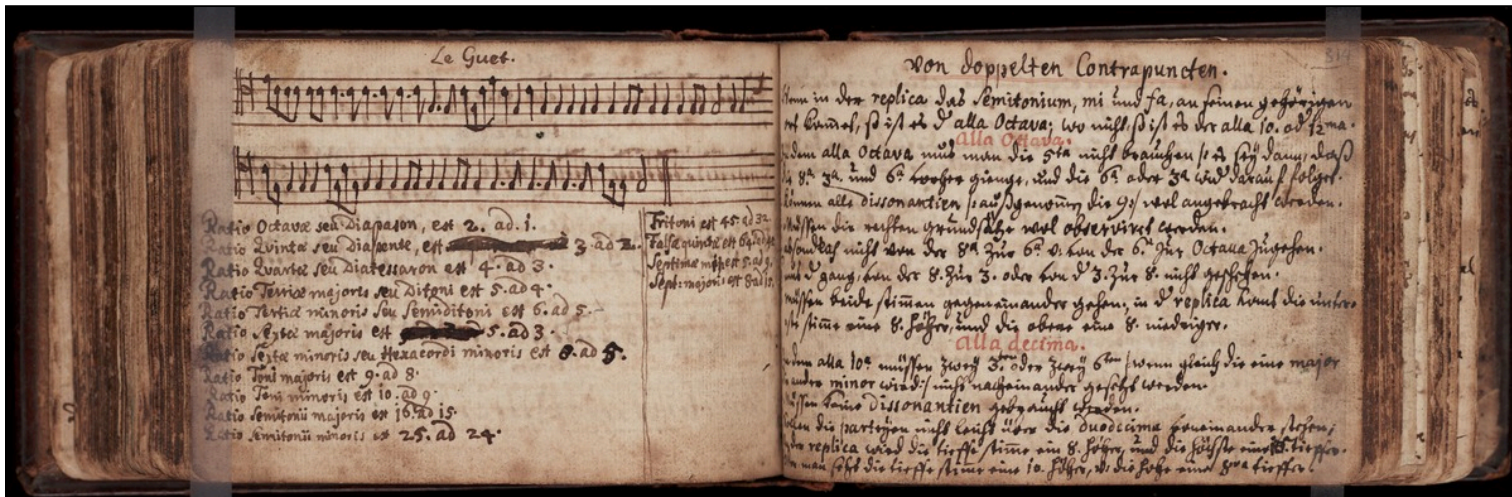 Le Guet.
Ratio Octavæ seu Diapason, est 2. ad. 1.
Ratio Quintæ seu Diapente, est 3. ad 2.
Ratio Quartæ seu Diatessaron est 4. ad 3.
Ratio Tertiæ majoris seu Ditoni est 5. ad 4.
Ratio Tertiæ minoris seu Semiditoni est 6. ad 5.
Ratio Sextæ majoris est 5. ad 3.
Ratio Sextæ minoris seu Hexacordi minoris est 8. ad 5.
Ratio Toni majoris est 9. ad 8.
Ratio Toni minoris est 10. ad 9.
Ratio Semitonii majoris est 16. ad 15.
Ratio Semitonii minoris est 25. ad 24.
Tritoni est 45. ad 32
Falsæ quintæ est 64. ad
Septimæ est 5. ad 9.
Sept: majoris est 8. ad 15.
314
Von doppelten Contrapuncten.
Wenn in der replica das Semitonium, mi und fa, an seinen gehörigen
ort kommet, so ist es d' alla Octava; wo nicht, so ist es der alla 10. od 12ma.
Alla Octava.
In dem alla Octava mus man die 5ta nicht brauchen /: es sey dann, daß
die 8a 3a. und 6a vorher gienge, und die 6a oder 3a darauf folget.
können alle dissonantien /: außgenommen die 9:/ wol angebracht werden.
Müssen die rechten grundsätze wol observiret werden.
nicht von der 8a zur 6a v: von der 6a zur Octava zugehen.
d' gang, von der 8. zur 3. oder von d' 3. zur 8. nicht geschehen.
müssen beide stimmen gegeneinander gehen; in d' replica komt die unter-
ste stimme eine 8. höher, und die obere eine 8. niedriger.
Alla decima.
In dem alla 10a müssen zwey 3ten oder zwey 6ten /: wenn gleich die eine major
die ander minor wird :/ nicht nacheinander gesetzt werden.
müssen keine dissonantien gebraucht werden.
sollen die partheyen nicht leicht über die duodecima voneinander stehen;
In der replica wird die tieffe stimme ein 8. höher, und die höchste eine 10. tieffer.
oder man setzt die tieffe stime eine 10. höher, v: die hohe eine 8va tieffer.